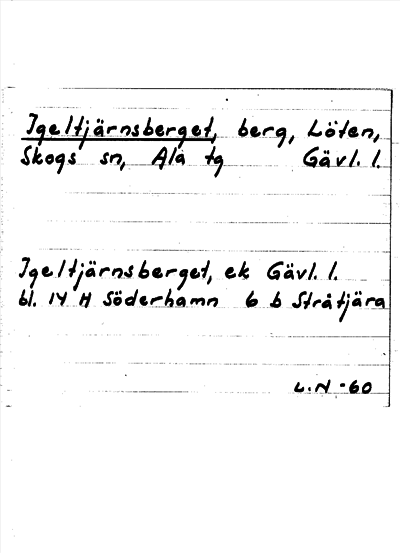 Igeltjärnsberget, berg, Löten,
Skogs sn, Ala tg Gävl. l.
Igeltjärnsberget, ek Gävl. l.
bl. 14 H Söderhamn 6 b Stråtjära
L.N -60